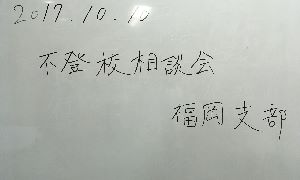 2017.10.10
不登校相談会
福岡支部